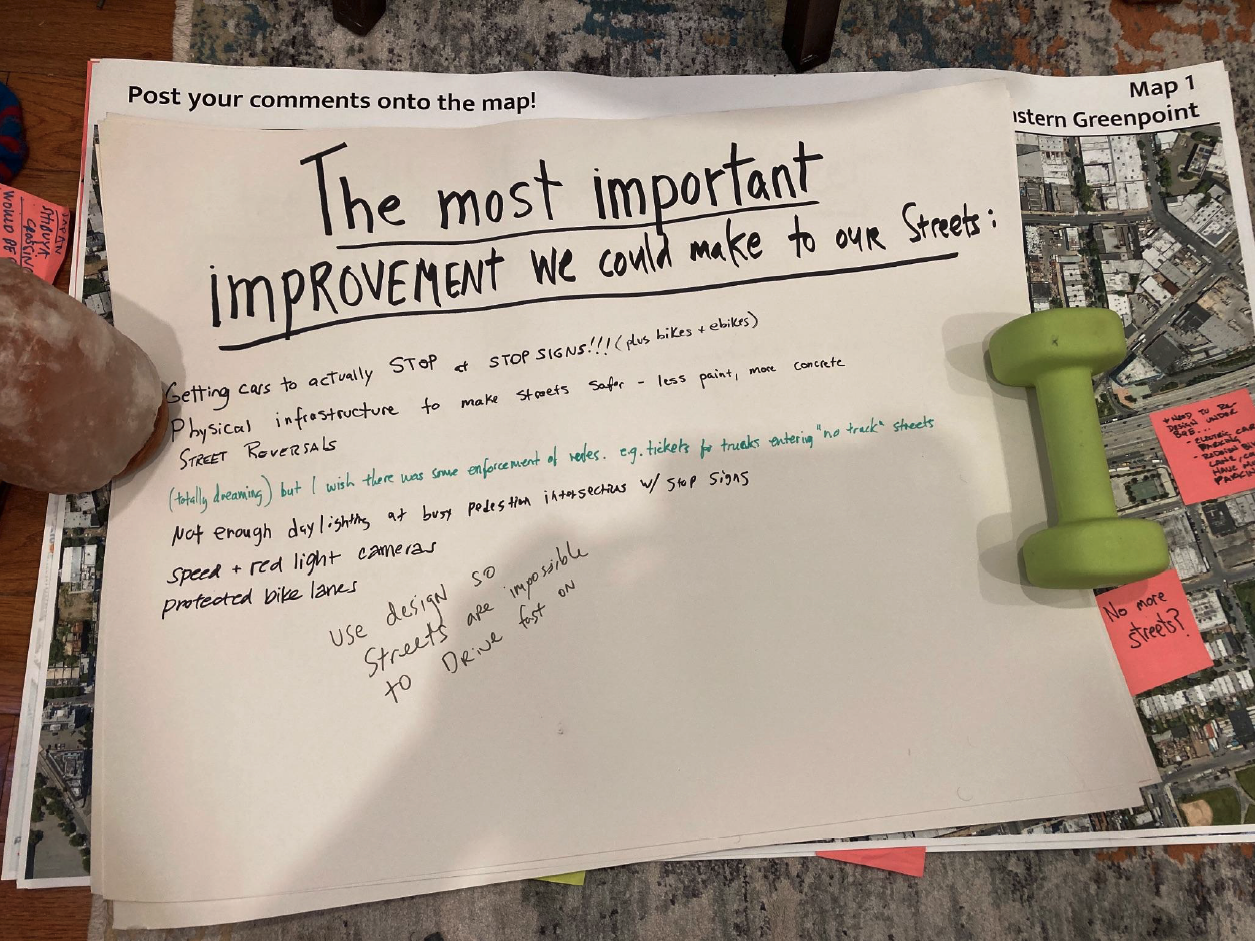 Post your comments onto the map!
Map 1
stern Greenpoint
The most important
IMPROVEMENT We could make to our Streets:
Getting cars to actually STOP at STOP SIGNS!!! (plus bikes + ebikes)
Physical infrastructure to make streets safer - less paint, more concrete
STREET REVERSALS
(totally dreaming) but I wish there was some enforcement of rules. e.g. tickets for trucks entering "no truck" streets
Not enough daylighting at busy pedestrian intersections w/ stop signs
speed + red light cameras
protected bike lanes
USE design so
Streets are impossible
to Drive fast on
WOULD BE
CROSSING
+ NEED TO RE
DESIGN UNDER
BQE...
- ELECTRIC CAR
PARKING
HAVE
No more
streets?